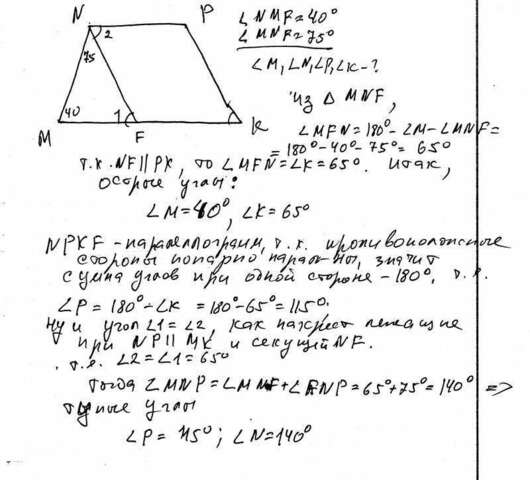 N P
2
75
40 1
M F K
∠NMF=40°
∠MNF=75°
∠M, ∠N, ∠P, ∠K-?
из △ MNF,
∠MFN=180°-∠M-∠MNF=
=180°-40°-75°=65°
т.к. NF||PK, то ∠MFN=∠K=65°. итак,
острые углы:
∠M=40°, ∠K=65°
NPKF-параллелограмм, т.к. противоположные
стороны попарно парал-ны, значит
сумма углов при одной стороне-180°, т.е.
∠P=180°-∠K=180°-65°=115°.
ну и угол ∠1=∠2, как накрест лежащие
при NP||MK и секущей NF.
т.е. ∠2=∠1=65°
тогда ∠MNP=∠MNF+∠FNP=65°+75°=140° =>
тупые углы
∠P=115°; ∠N=140°